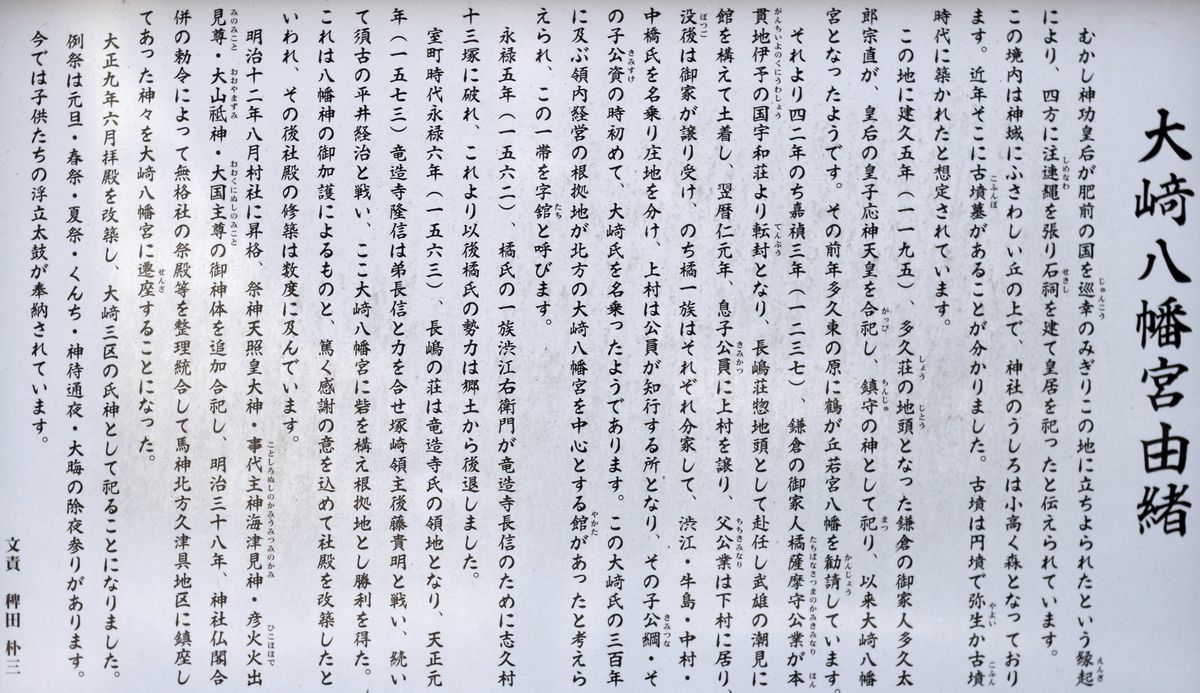 大﨑八幡宮由緒
むかし神功皇后が肥前の国を巡幸のみぎりこの地に立ちよられたという縁起
により、四方に注連縄を張り石祠を建て皇居を祀ったと伝えられています。
この境内は神域にふさわしい丘の上で、神社のうしろは小高く森となっており
ます。近年そこに古墳墓があることが分かりました。古墳は円墳で弥生か古墳
時代に築かれたと想定されています。
この地に建久五年（一一九五）、多久荘の地頭となった鎌倉の御家人多久太
郎宗直が、皇后の皇子応神天皇を合祀し、鎮守の神として祀り、以来大﨑八幡
宮となったようです。その前年多久東の原に鶴が丘若宮八幡を勧請しています。
それより四二年のち嘉禎三年（一二三七）、鎌倉の御家人橘薩摩守公業が本
貫地伊予の国宇和荘より転封となり、長嶋荘惣地頭として赴任し武雄の潮見に
館を構えて土着し、翌暦仁元年、息子公員に上村を譲り、父公業は下村に居り、
没後は御家が譲り受け、のち橘一族はそれぞれ分家して、渋江・牛島・中村・
中橋氏を名乗り庄地を分け、上村は公員が知行する所となり、その子公綱・そ
の子公資の時初めて、大﨑氏を名乗ったようであります。この大﨑氏の三百年
に及ぶ領内経営の根拠地が北方の大﨑八幡宮を中心とする館があったと考えら
えられ、この一帯を字館と呼びます。
永禄五年（一五六二）、橘氏の一族渋江右衛門が竜造寺長信のために志久村
十三塚に破れ、これより以後橘氏の勢力は郷土から後退しました。
室町時代永禄六年（一五六三）、長嶋の荘は竜造寺氏の領地となり、天正元
年（一五七三）竜造寺隆信は弟長信と力を合せ塚崎領主後藤貴明と戦い、続い
て須古の平井経治と戦い、ここ大﨑八幡宮に砦を構え根拠地とし勝利を得た。
これは八幡神の御加護によるものと、篤く感謝の意を込めて社殿を改築したと
いわれ、その後社殿の修築は数度に及んでいます。
明治十二年八月村社に昇格、祭神天照皇大神・事代主神海津見神・彦火火出
見尊・大山祗神・大国主尊の御神体を追加合祀し、明治三十八年、神社仏閣合
併の勅令によって無格社の祭殿等を整理統合して馬神北方久津具地区に鎮座し
てあった神々を大﨑八幡宮に遷座することになった。
大正九年六月拝殿を改築し、大﨑三区の氏神として祀ることになりました。
例祭は元旦・春祭・夏祭・くんち・神待通夜・大晦の除夜参りがあります。
今では子供たちの浮立太鼓が奉納されています。
文責　稗田　朴三